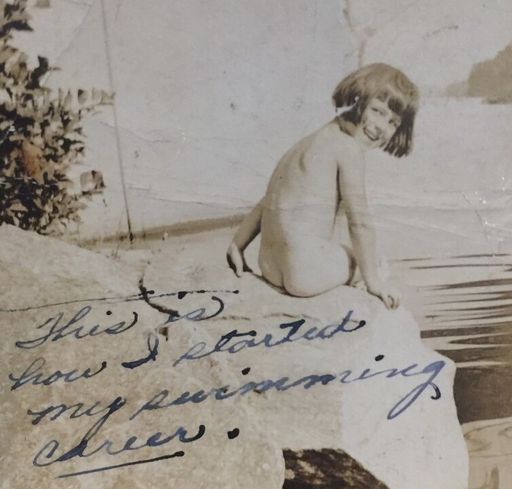 This is
how I started
my swimming
career.